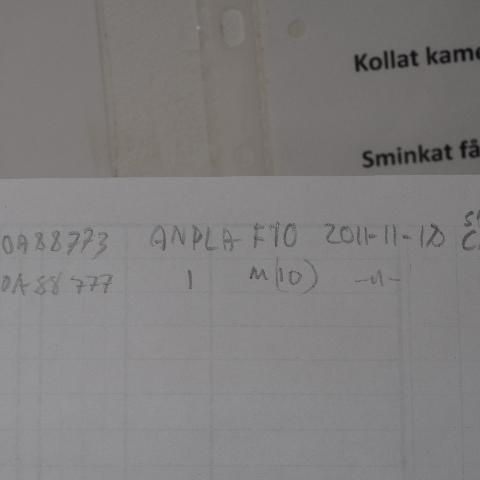 Kollat kame
Sminkat få
0A88773 ANPLA F10 2011-11-18
0A88777 1 M(10) -11-